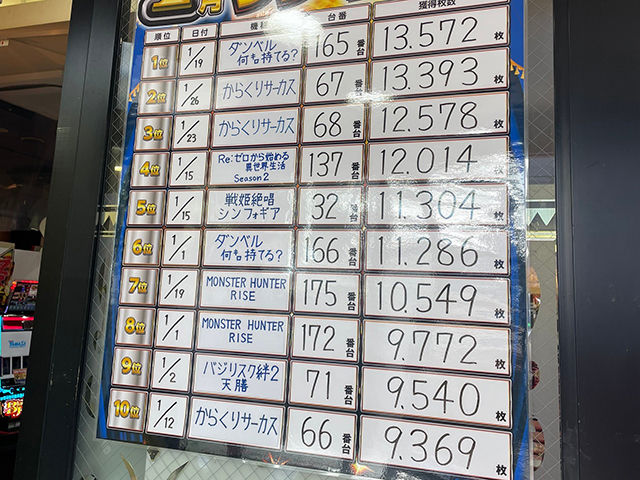 順位 日付 台番 獲得枚数
1位 1/19 ダンベル何キロ持てる? 165番台 13.572枚
2位 1/26 からくりサーカス 67番台 13.393枚
3位 1/23 からくりサーカス 68番台 12.578枚
4位 1/15 Re:ゼロから始める異世界生活 Season2 137番台 12.014枚
5位 1/15 戦姫絶唱シンフォギア 32番台 11.304枚
6位 1/1 ダンベル何キロ持てる? 166番台 11.286枚
7位 1/19 MONSTER HUNTER RISE 175番台 10.549枚
8位 1/1 MONSTER HUNTER RISE 172番台 9.772枚
9位 1/2 バジリスク絆2 天膳 71番台 9.540枚
10位 1/12 からくりサーカス 66番台 9.369枚